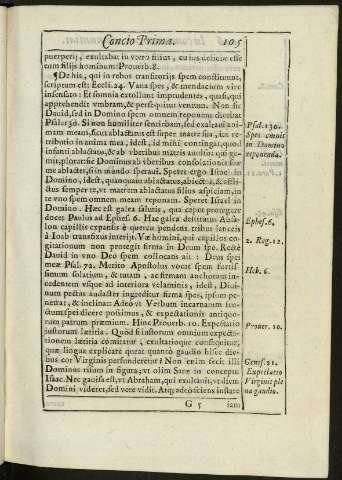 Concio Prima. 105
puerperij, exultabat in vtero filius, cuius deliciæ esse
cum filijs hominum: Prouerb. 8.
¶ De his, qui in rebus transitorijs spem constituunt,
scriptum est: Eccli. 24. Vana spes, & mendacium viro
insensato: Et somnia extollunt imprudentes, quasi qui
apprehendit vmbram, & persequitur ventum. Non sic
Dauid, sed in Domino spem omnem reponens dicebat
Psal. 130. Si non humiliter sentiebam, sed exaltaui ani-
mam meam, sicut ablactatus est super matre sua, ita re-
tributio in anima mea, idest, id mihi contingat, quod
infanti ablactato, & ab vberibus matris auulso: qui ge-
mit, plorat: sic Dominus ab vberibus consolationis suæ
me ablactet, si in mundo speraui. Speret ergo Israel in
Domino, idest, quanquam ablactatus, abiectus, & affli-
ctus semper te, vt matrem ablactatus filius aspiciam, in
te vno spem omnem meam reponam. Speret Israel in
Domino. Hæc est galea salutis, qua caput protegere
docet Paulus ad Ephes. 6. Hac galea destitutum Absa-
lon capillis expansis è quercu pendens tribus lanceis
à Ioab transfixus interijt. Væ homini, qui capillos co-
gitationum non protegit firma in Deum spe. Recte
Dauid in vno Deo spem collocans ait: Deus spei
meæ Psal. 72. Merito Apostolus vocat spem fortis-
simum solatium, & tutam, ac firmam anchoram in-
cedentem vsque ad interiora velaminis, idest, Diui-
num pectus audacter ingreditur firma spes, ipsum pe-
netrat, & inclinat: Adeo vt Verbum incarnatum fru-
ctum spei dicere possimus, & expectationis antiquo-
rum patrum præmium. Hinc Prouerb. 10. Expectatio
iustorum lætitia. Quòd si iustorum omnium expecta-
tionem lætitia comitatur, exultatioque consequitur,
quæ lingua explicare queat quanto gaudio hisce die-
bus cor Virginis perfunderetur? Non enim fecit illi
Dominus risum in figura, vt olim Saræ in conceptu
Isaac. Nec gauisa est, vt Abraham, qui exultauit, vt diem
Domini videret, sed vere vidit. Atque adeo sciens instare
G 5 iam
Psal. 130.
Spes omnis
in Domino
reponenda.
Ephes. 6.
2. Reg. 12.
Heb. 6.
Prouer. 10.
Genes. 21.
Expectatio
Virginis ple
na gaudio.